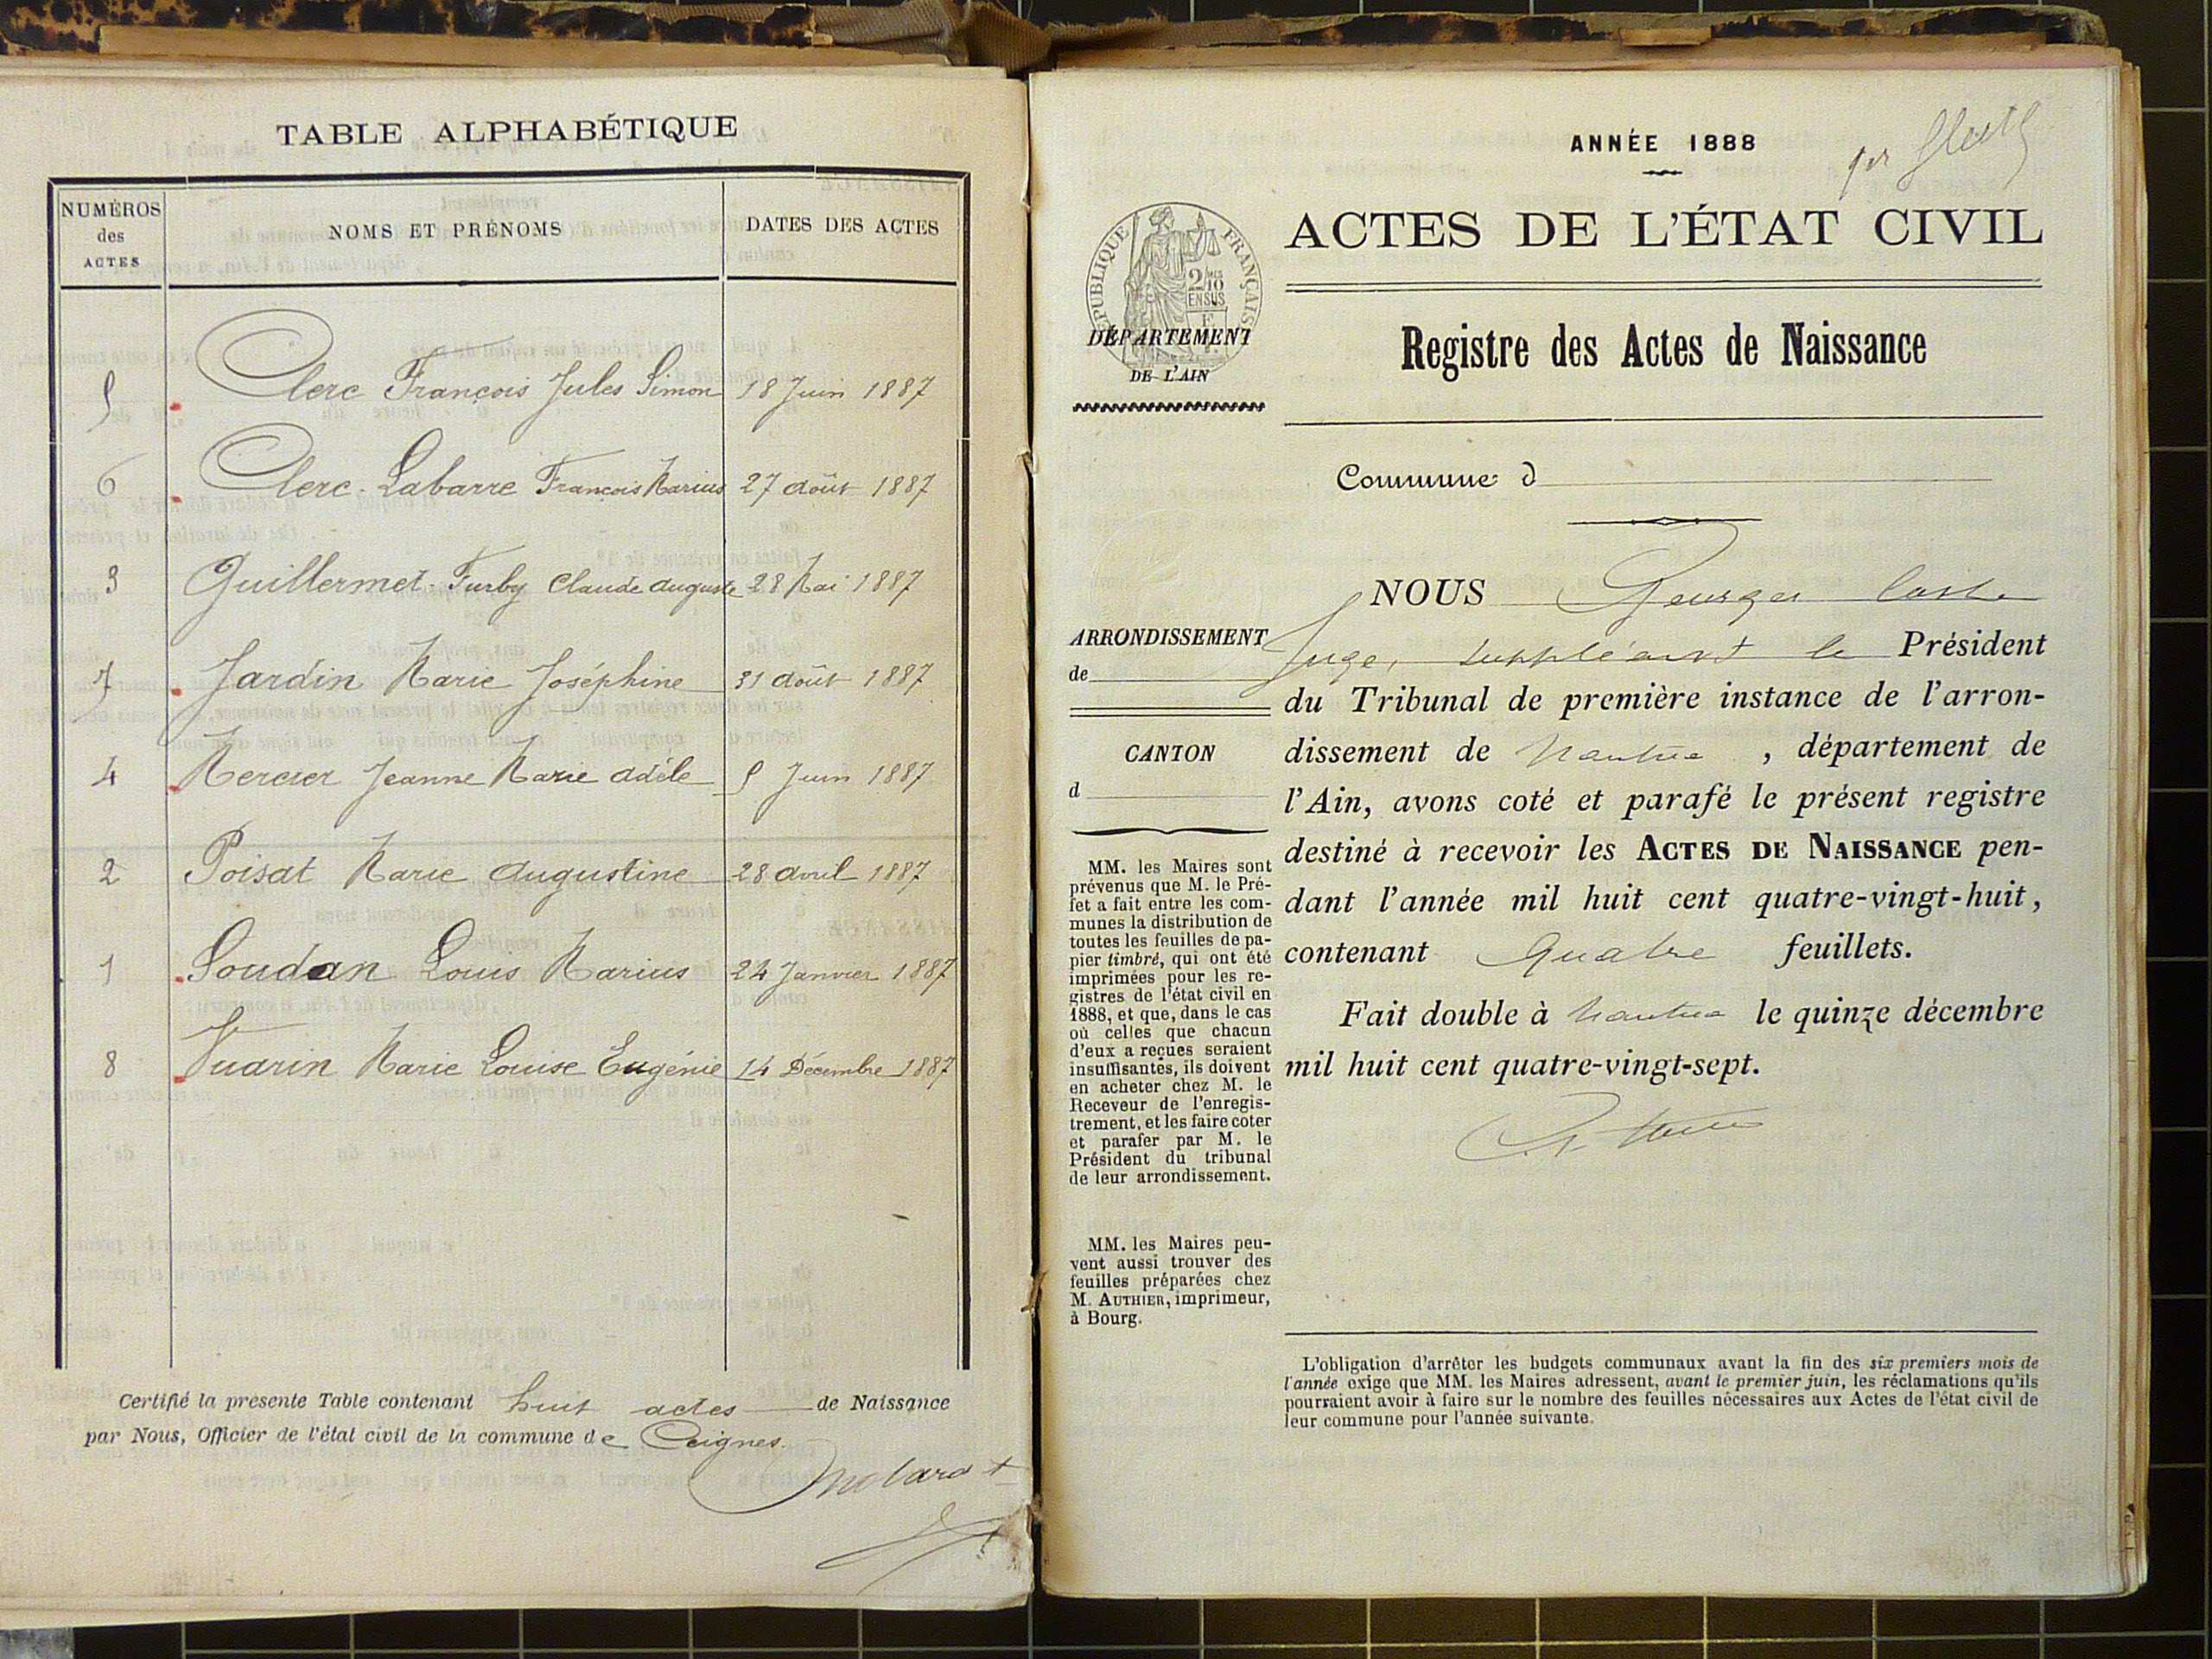 TABLE ALPHABÉTIQUE
NUMÉROS des ACTES NOMS ET PRÉNOMS DATES DES ACTES
5 Clerc François Jules Simon 18 Juin 1887
6 Clerc-Labarre François Marius 27 août 1887
3 Guillermet-Furby Claude Auguste 28 Mai 1887
7 Jardin Marie Joséphine 31 août 1887
4 Mercier Jeanne Marie Adèle 5 Juin 1887
2 Poisat Marie Augustine 28 avril 1887
1 Soudan Louis Marius 24 Janvier 1887
8 Vuarin Marie Louise Eugénie 14 Décembre 1887
Certifié la présente Table contenant huit actes de Naissance
par Nous, Officier de l'état civil de la commune de Ceignes.
ANNÉE 1888
RÉPUBLIQUE FRANÇAISE
2/10 EN SUS
DÉPARTEMENT
DE L'AIN
ACTES DE L'ÉTAT CIVIL
Registre des Actes de Naissance
Commune d
ARRONDISSEMENT
de
CANTON
d
MM. les Maires sont
prévenus que M. le Pré-
fet a fait entre les com-
munes la distribution de
toutes les feuilles de pa-
pier timbré, qui ont été
imprimées pour les re-
gistres de l'état civil en
1888, et que, dans le cas
où celles que chacun
d'eux a reçues seraient
insuffisantes, ils doivent
en acheter chez M. le
Receveur de l'enregis-
trement, et les faire coter
et parafer par M. le
Président du tribunal
de leur arrondissement.
MM. les Maires peu-
vent aussi trouver des
feuilles préparées chez
M. AUTHIER, imprimeur,
à Bourg.
NOUS Georges
Juge, suppléant le Président
du Tribunal de première instance de l'arron-
dissement de Nantua, département de
l'Ain, avons coté et parafé le présent registre
destiné à recevoir les ACTES DE NAISSANCE pen-
dant l'année mil huit cent quatre-vingt-huit,
contenant quatre feuillets.
Fait double à Nantua le quinze décembre
mil huit cent quatre-vingt-sept.
L'obligation d'arrêter les budgets communaux avant la fin des six premiers mois de
l'année exige que MM. les Maires adressent, avant le premier juin, les réclamations qu'ils
pourraient avoir à faire sur le nombre des feuilles nécessaires aux Actes de l'état civil de
leur commune pour l'année suivante.